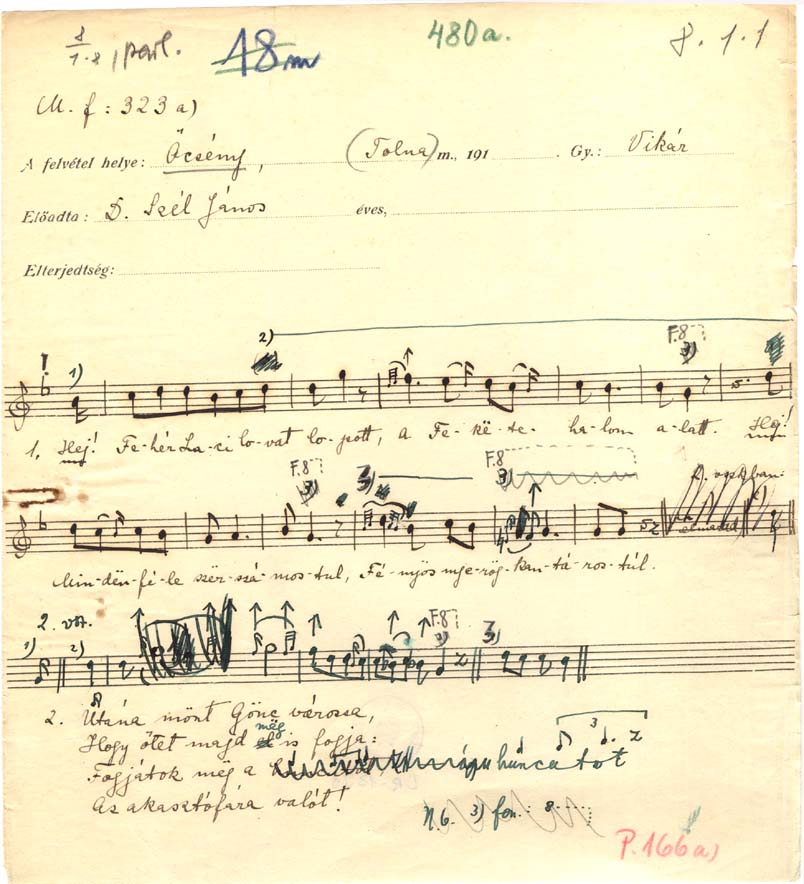 8/7.8 /parl. 18m 480a. 8.1.1
M. f : 323 a)
A felvétel helye: Őcsény, (Tolna) m., 191 . Gy.: Vikár
Előadta: D. Szél János éves,
Elterjedtség:
2)
F.8
1) 3)
1. Hej! Fe-hér La-ci lo-vat lo-pott, a Fe-kë-te ha-lom a-latt. Hej!
F.8 3) 3 F.8 3)
Min-dën-fé-le szër-szá-mos-tul, Fé-nyös nye-rög-kan-tá-ros-túl.
2. vsz.
1) 2) F.8 3) 3
2. Utána mönt Gönc várossa,
Hogy őtet majd még is fogja:
Fogjátok még a huncatot
Az akasztófára valót!
N.B. 3) fon.: 8
P.166a)